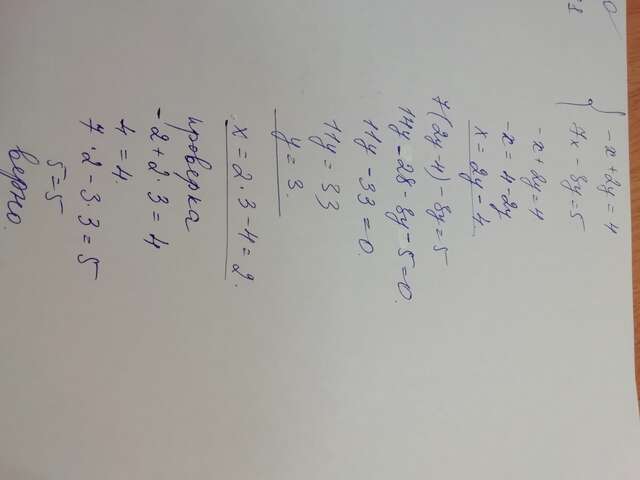 { -x + 2y = 4
7x - 3y = 5
-x + 2y = 4
-x = 4 - 2y
x = 2y - 4.
7(2y - 4) - 3y = 5
14y - 28 - 3y - 5 = 0.
11y - 33 = 0.
11y = 33
y = 3.
x = 2 · 3 - 4 = 2.
проверка
-2 + 2 · 3 = 4
4 = 4.
7 · 2 - 3 · 3 = 5
5 = 5
верно.